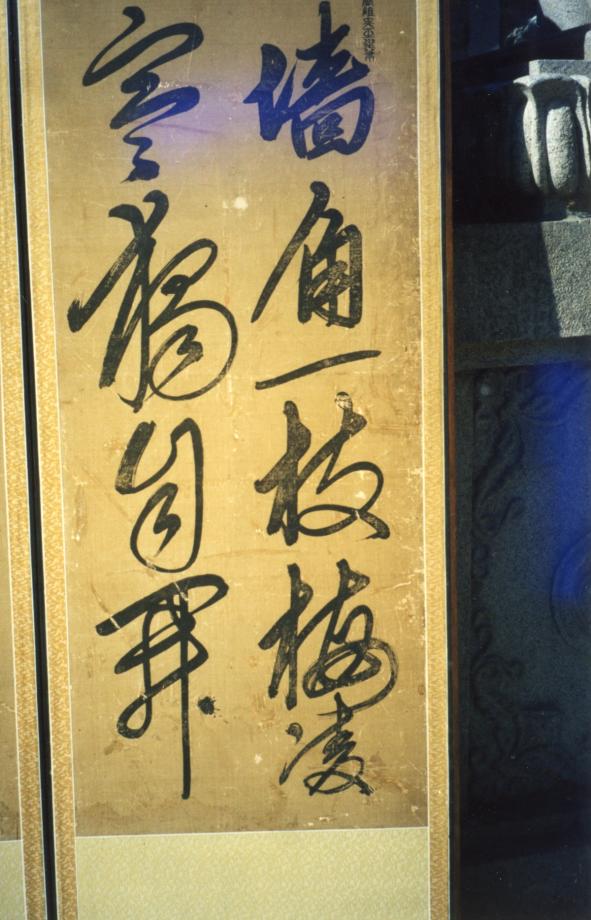 墻角一枝梅凌
寒獨自開